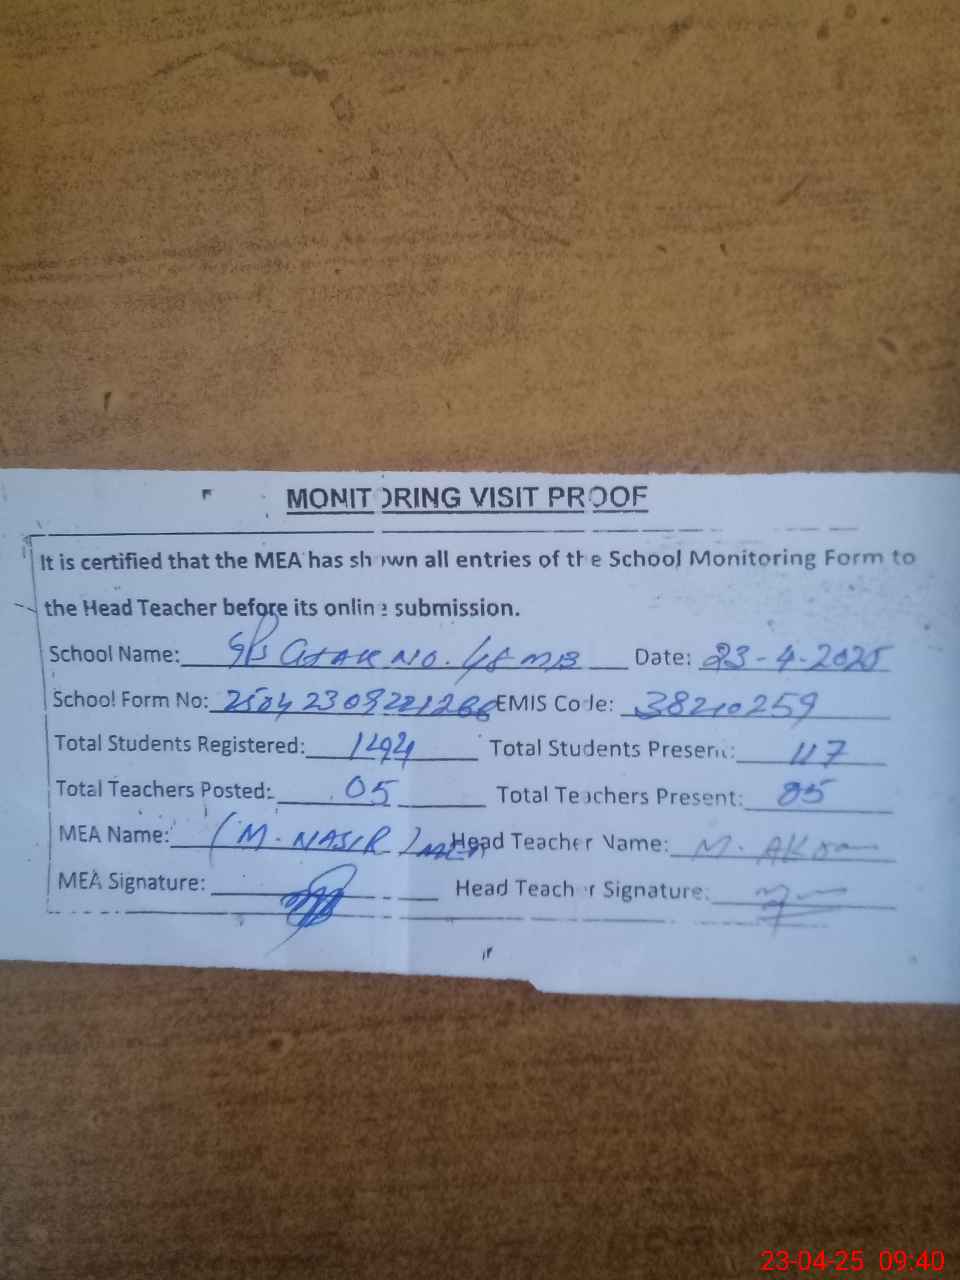 MONITORING VISIT PROOF
It is certified that the MEA has shown all entries of the School Monitoring Form to
the Head Teacher before its online submission.
School Name: GPS NO. 48 MB Date: 23-4-2025
School Form No: EMIS Code: 38210259
Total Students Registered: Total Students Present: 117
Total Teachers Posted: 05 Total Teachers Present: 05
MEA Name: (M. NASIR) MEA Head Teacher Name: M. AKram
MEA Signature: Head Teacher Signature:
23-04-25 09:40